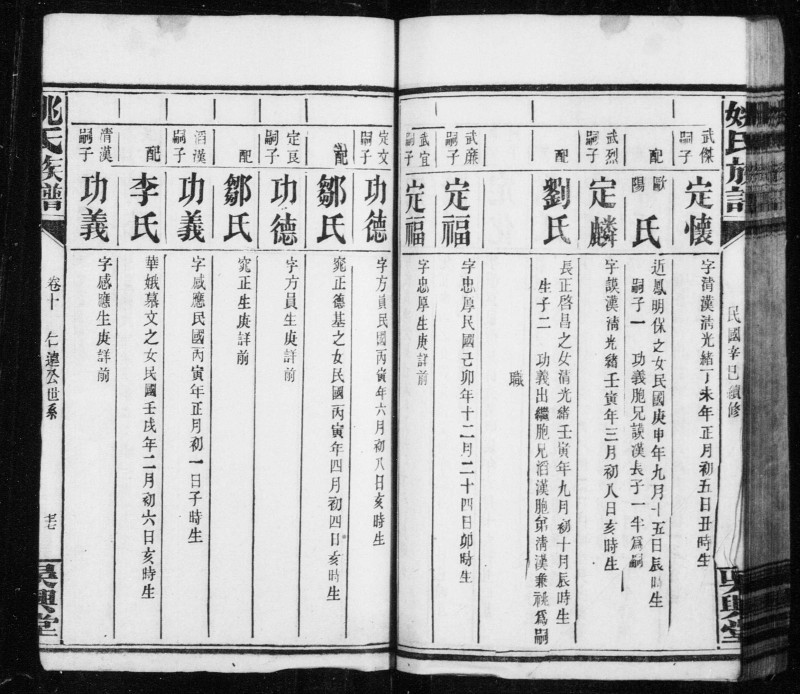 姚氏族譜
民國辛巳續修
吳興堂
武傑
嗣子
定懷
字清漢清光緒丁未年正月初五日丑時生
配
歐陽氏
近鳳明保之女民國庚申年九月十五日辰時生
嗣子一 功義胞兄談漢長子一半爲嗣
武烈
嗣子
定麟
字談漢清光緒壬寅年三月初八日亥時生
配
劉氏
長正啓昌之女清光緒壬寅年九月初十月辰時生
生子二 功義出繼胞兄滔漢胞弟清漢兼祧爲嗣
職
武廉
嗣子
定福
字忠厚民國己卯年十二月二十四日卯時生
武宜
嗣子
定福
字忠厚生庚詳前
定文
嗣子
功德
字方員民國丙寅年六月初八日亥時生
配
鄒氏
寬正德基之女民國丙寅年四月初四日亥時生
定良
嗣子
功德
字方員生庚詳前
配
鄒氏
寬正生庚詳前
滔漢
嗣子
功義
字感應民國丙寅年正月初一日子時生
配
李氏
華娥慕文之女民國壬戌年二月初六日亥時生
清漢
嗣子
功義
字感應生庚詳前
姚氏族譜
卷十 仁達公世系
吳興堂